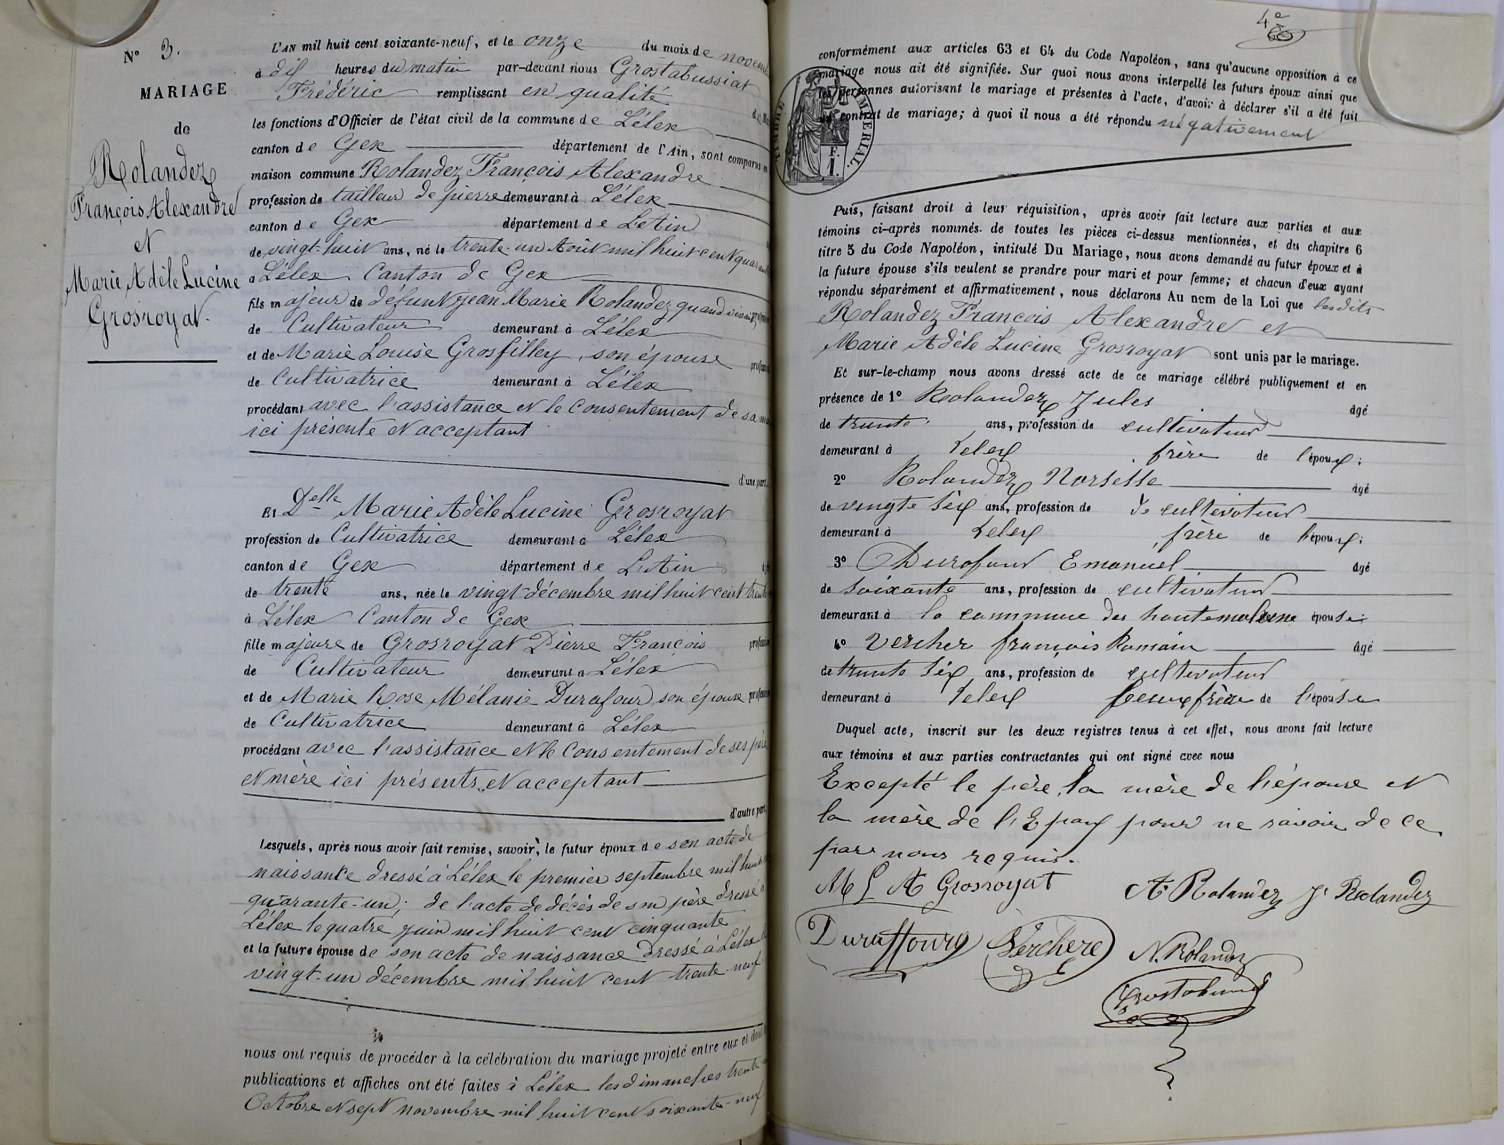 N° 3.
MARIAGE
de
Rolandez
François Alexandre
et
Marie Adèle Lucine
Grosroyat.
L'AN mil huit cent soixante-neuf, et le onze du mois de novem
à dix heures du matin par-devant nous Grostabussiat
Frédéric remplissant en qualité
les fonctions d'Officier de l'état civil de la commune de Lélex
canton de Gex département de l'Ain, sont comparus
maison commune Rolandez François Alexandre
profession de tailleur de pierre demeurant à Lélex
canton de Gex département de L'Ain
de vingt-huit ans, né le trente-un Août mil huit cent quarante
à Lélex Canton de Gex
fils majeur de défunt Jean Marie Rolandez quand vivait
de Cultivateur demeurant à Lélex
et de Marie Louise Grosfilley, son épouse
de Cultivatrice demeurant à Lélex
procédant avec l'assistance et le consentement de sa
ici présente et acceptant
d'une part.
Et Delle Marie Adèle Lucine Grosroyat
profession de Cultivatrice demeurant à Lélex
canton de Gex département de L'Ain
de trente ans, née le vingt décembre mil huit cent trente
à Lélex Canton de Gex
fille majeure de Grosroyat Pierre François
de Cultivateur demeurant à Lélex
et de Marie Rose Mélanie Durafour son épouse
de Cultivatrice demeurant à Lélex
procédant avec l'assistance et le consentement de ses père
et mère ici présents et acceptant
d'autre part.
Lesquels, après nous avoir fait remise, savoir, le futur époux de son acte de
naissance dressé à Lélex le premier septembre mil huit
quarante-un; de l'acte de décès de son père dressé
Lélex le quatre juin mil huit cent cinquante
et la future épouse de son acte de naissance dressé à Lélex
vingt-un décembre mil huit cent trente neuf
nous ont requis de procéder à la célébration du mariage projeté entre eux et dont
publications et affiches ont été faites à Lélex les dimanches trente
Octobre et sept novembre mil huit cent soixante-neuf
4e
conformément aux articles 63 et 64 du Code Napoléon, sans qu'aucune opposition à ce
mariage nous ait été signifiée. Sur quoi nous avons interpellé les futurs époux ainsi que
les personnes autorisant le mariage et présentes à l'acte, d'avoir à déclarer s'il a été fait
un contrat de mariage; à quoi il nous a été répondu négativement
TIMBRE IMPERIAL
F.
1.
Puis, faisant droit à leur réquisition, après avoir fait lecture aux parties et aux
témoins ci-après nommés, de toutes les pièces ci-dessus mentionnées, et du chapitre 6
titre 5 du Code Napoléon, intitulé Du Mariage, nous avons demandé au futur époux et à
la future épouse s'ils veulent se prendre pour mari et pour femme; et chacun d'eux ayant
répondu séparément et affirmativement, nous déclarons Au nom de la Loi que lesdits
Rolandez François Alexandre et
Marie Adèle Lucine Grosroyat sont unis par le mariage.
Et sur-le-champ nous avons dressé acte de ce mariage célébré publiquement et en
présence de 1° Rolandez Jules âgé
de trente ans, profession de cultivateur
demeurant à Lelex frère de l'époux;
2° Rolandez Norsisse âgé
de vingte six ans, profession de de cultivateur
demeurant à Lelex frère de l'époux;
3° Durafour Emanuel âgé
de soixante ans, profession de cultivateur
demeurant à la commune des hautemolune épouse;
4° Vercher françois Romain âgé
de trente six ans, profession de cultivateur
demeurant à Lelex beaufrère de l'épouse
Duquel acte, inscrit sur les deux registres tenus à cet effet, nous avons fait lecture
aux témoins et aux parties contractantes qui ont signé avec nous
Excepté le père, la mère de l'épouse et
la mère de l'Epoux pour ne savoir de ce
faire nous requis.
M L A Grosroyat A. Rolandez J. Rolandez
Duraffourg Verchere N. Rolandez
Grostabussiat